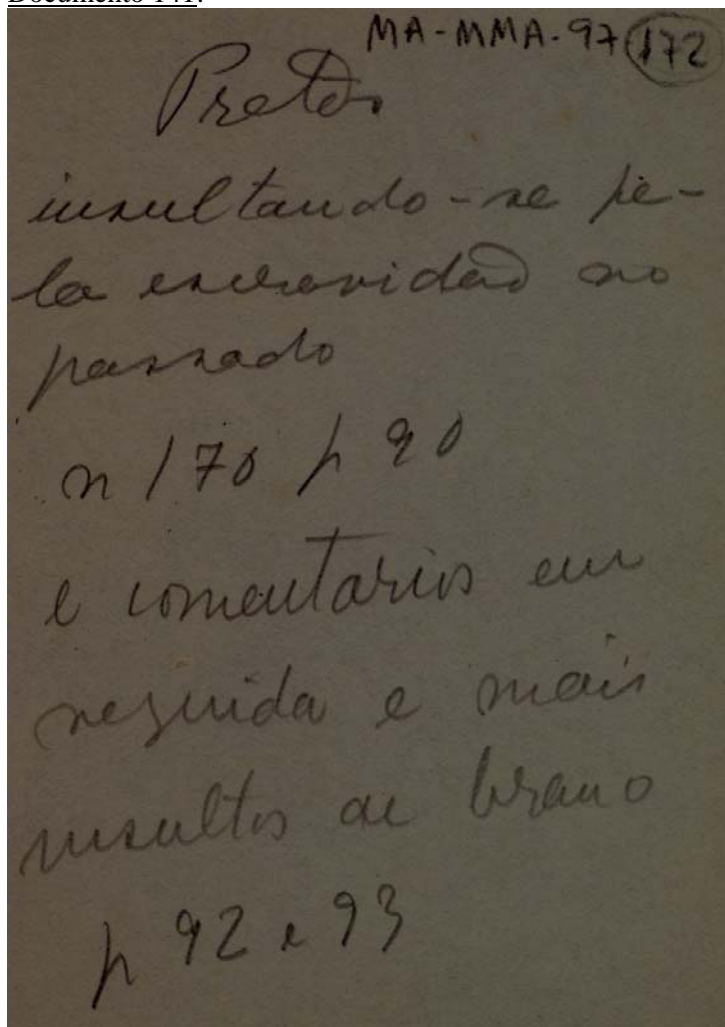 Documento 141:
MA-MMA-97 172
Pretos
insultando-se pe-
la escravidão no
passado
n 170 p 90
e comentarios em
seguida e mais
insultos de branco
p 92 e 93